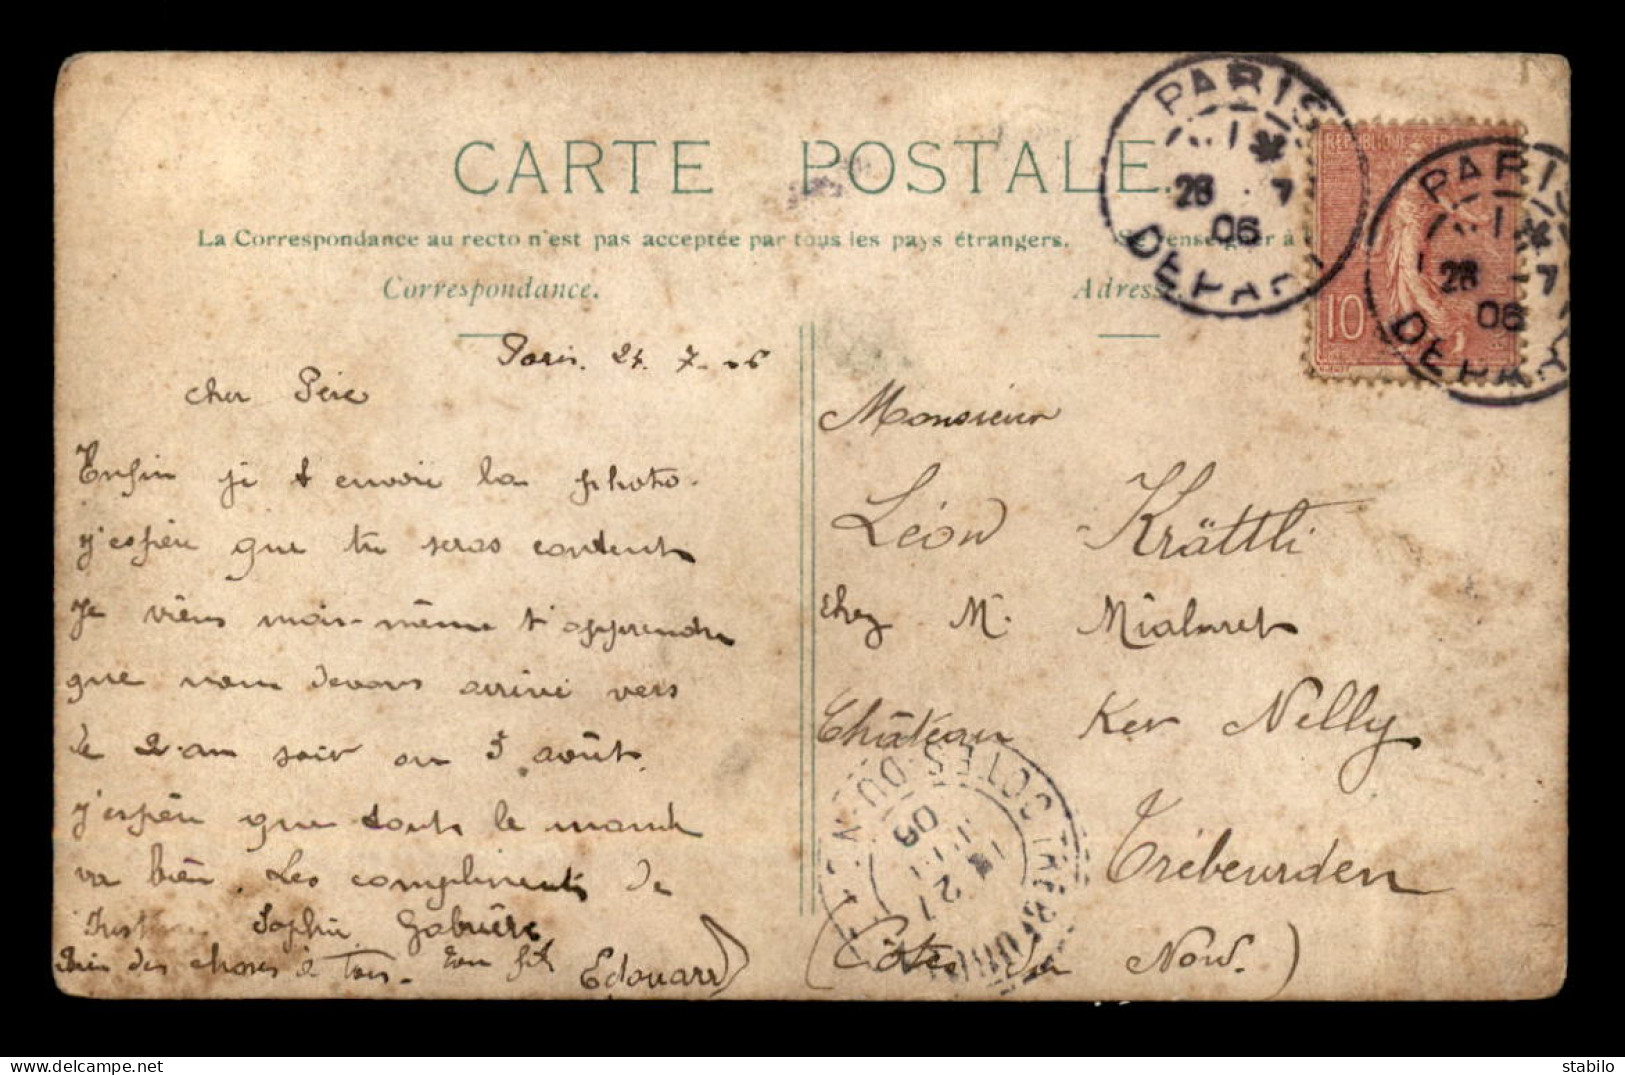 CARTE POSTALE
La Correspondance au recto n'est pas acceptée par tous les pays étrangers. Se renseigner à
Correspondance.
Adresse.
PARIS
28 7
06
DEPART
REPUBLIQUE
10
PARIS
28 7
06
DEPART
Paris. 7
cher Père
Enfin je t envoie la photo.
j'espère que tu seras content
je viens moi-même t'apprendre
que nous devons arrivé vers
le 2 au soir ou 3 août.
j'espère que tout le monde
va bien. Les compliments de
Sophie
des choses à Tous. Ton fils Edouard
Monsieur
Léon Krättli
chez M. Mialaret
Château Ker Nelly
Trébeurden
(Côtes du Nord.)
COTES DU N
06
delcampe.net
stabilo